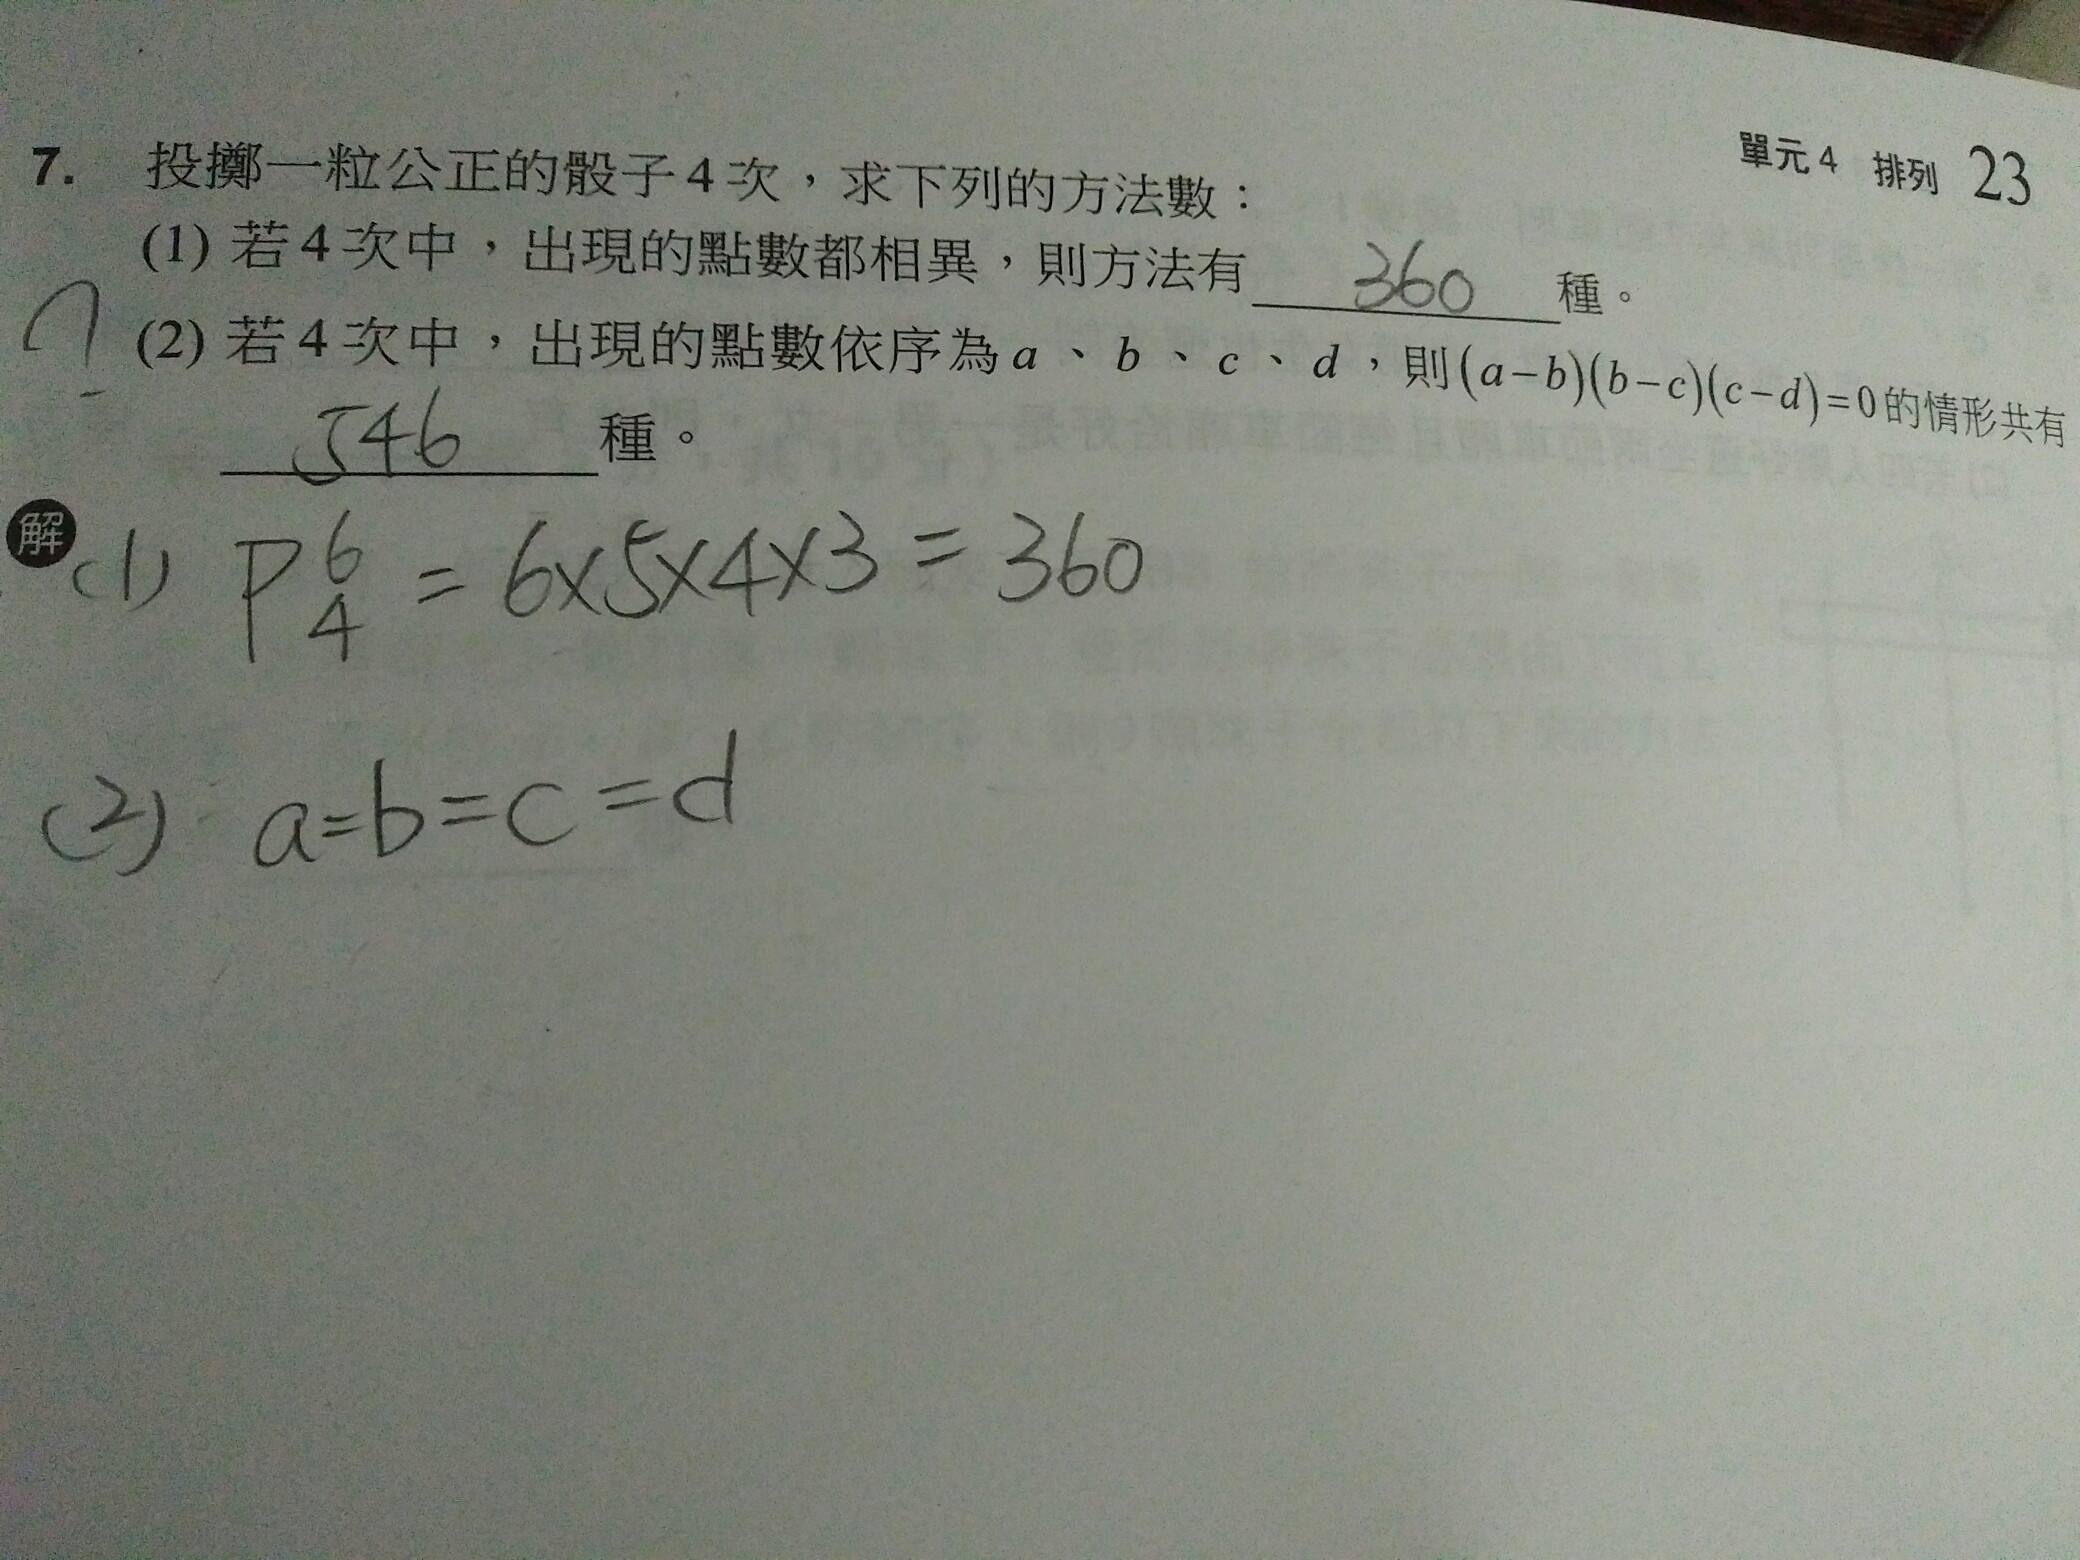 單元4 排列 23
7. 投擲一粒公正的骰子4次，求下列的方法數：
(1) 若4次中，出現的點數都相異，則方法有 360 種。
? (2) 若4次中，出現的點數依序為a、b、c、d，則(a−b)(b−c)(c−d)=0的情形共有
546 種。
解 (1) P⁶₄ = 6×5×4×3 = 360
(2) a=b=c=d